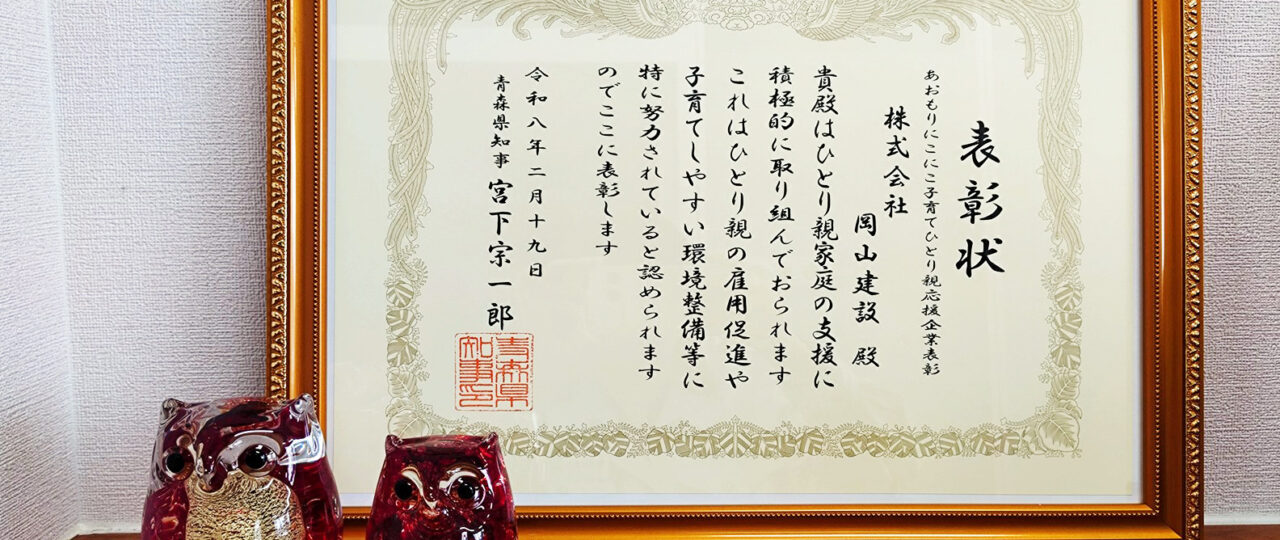 表彰状
あおもりにこにこ子育てひとり親応援企業表彰
株式会社
岡山建設 殿
貴殿はひとり親家庭の支援に
積極的に取り組んでおられます
これはひとり親の雇用促進や
子育てしやすい環境整備等に
特に努力されていると認められます
のでここに表彰します
令和八年二月十九日
青森県知事 宮下宗一郎
青森県
知事印